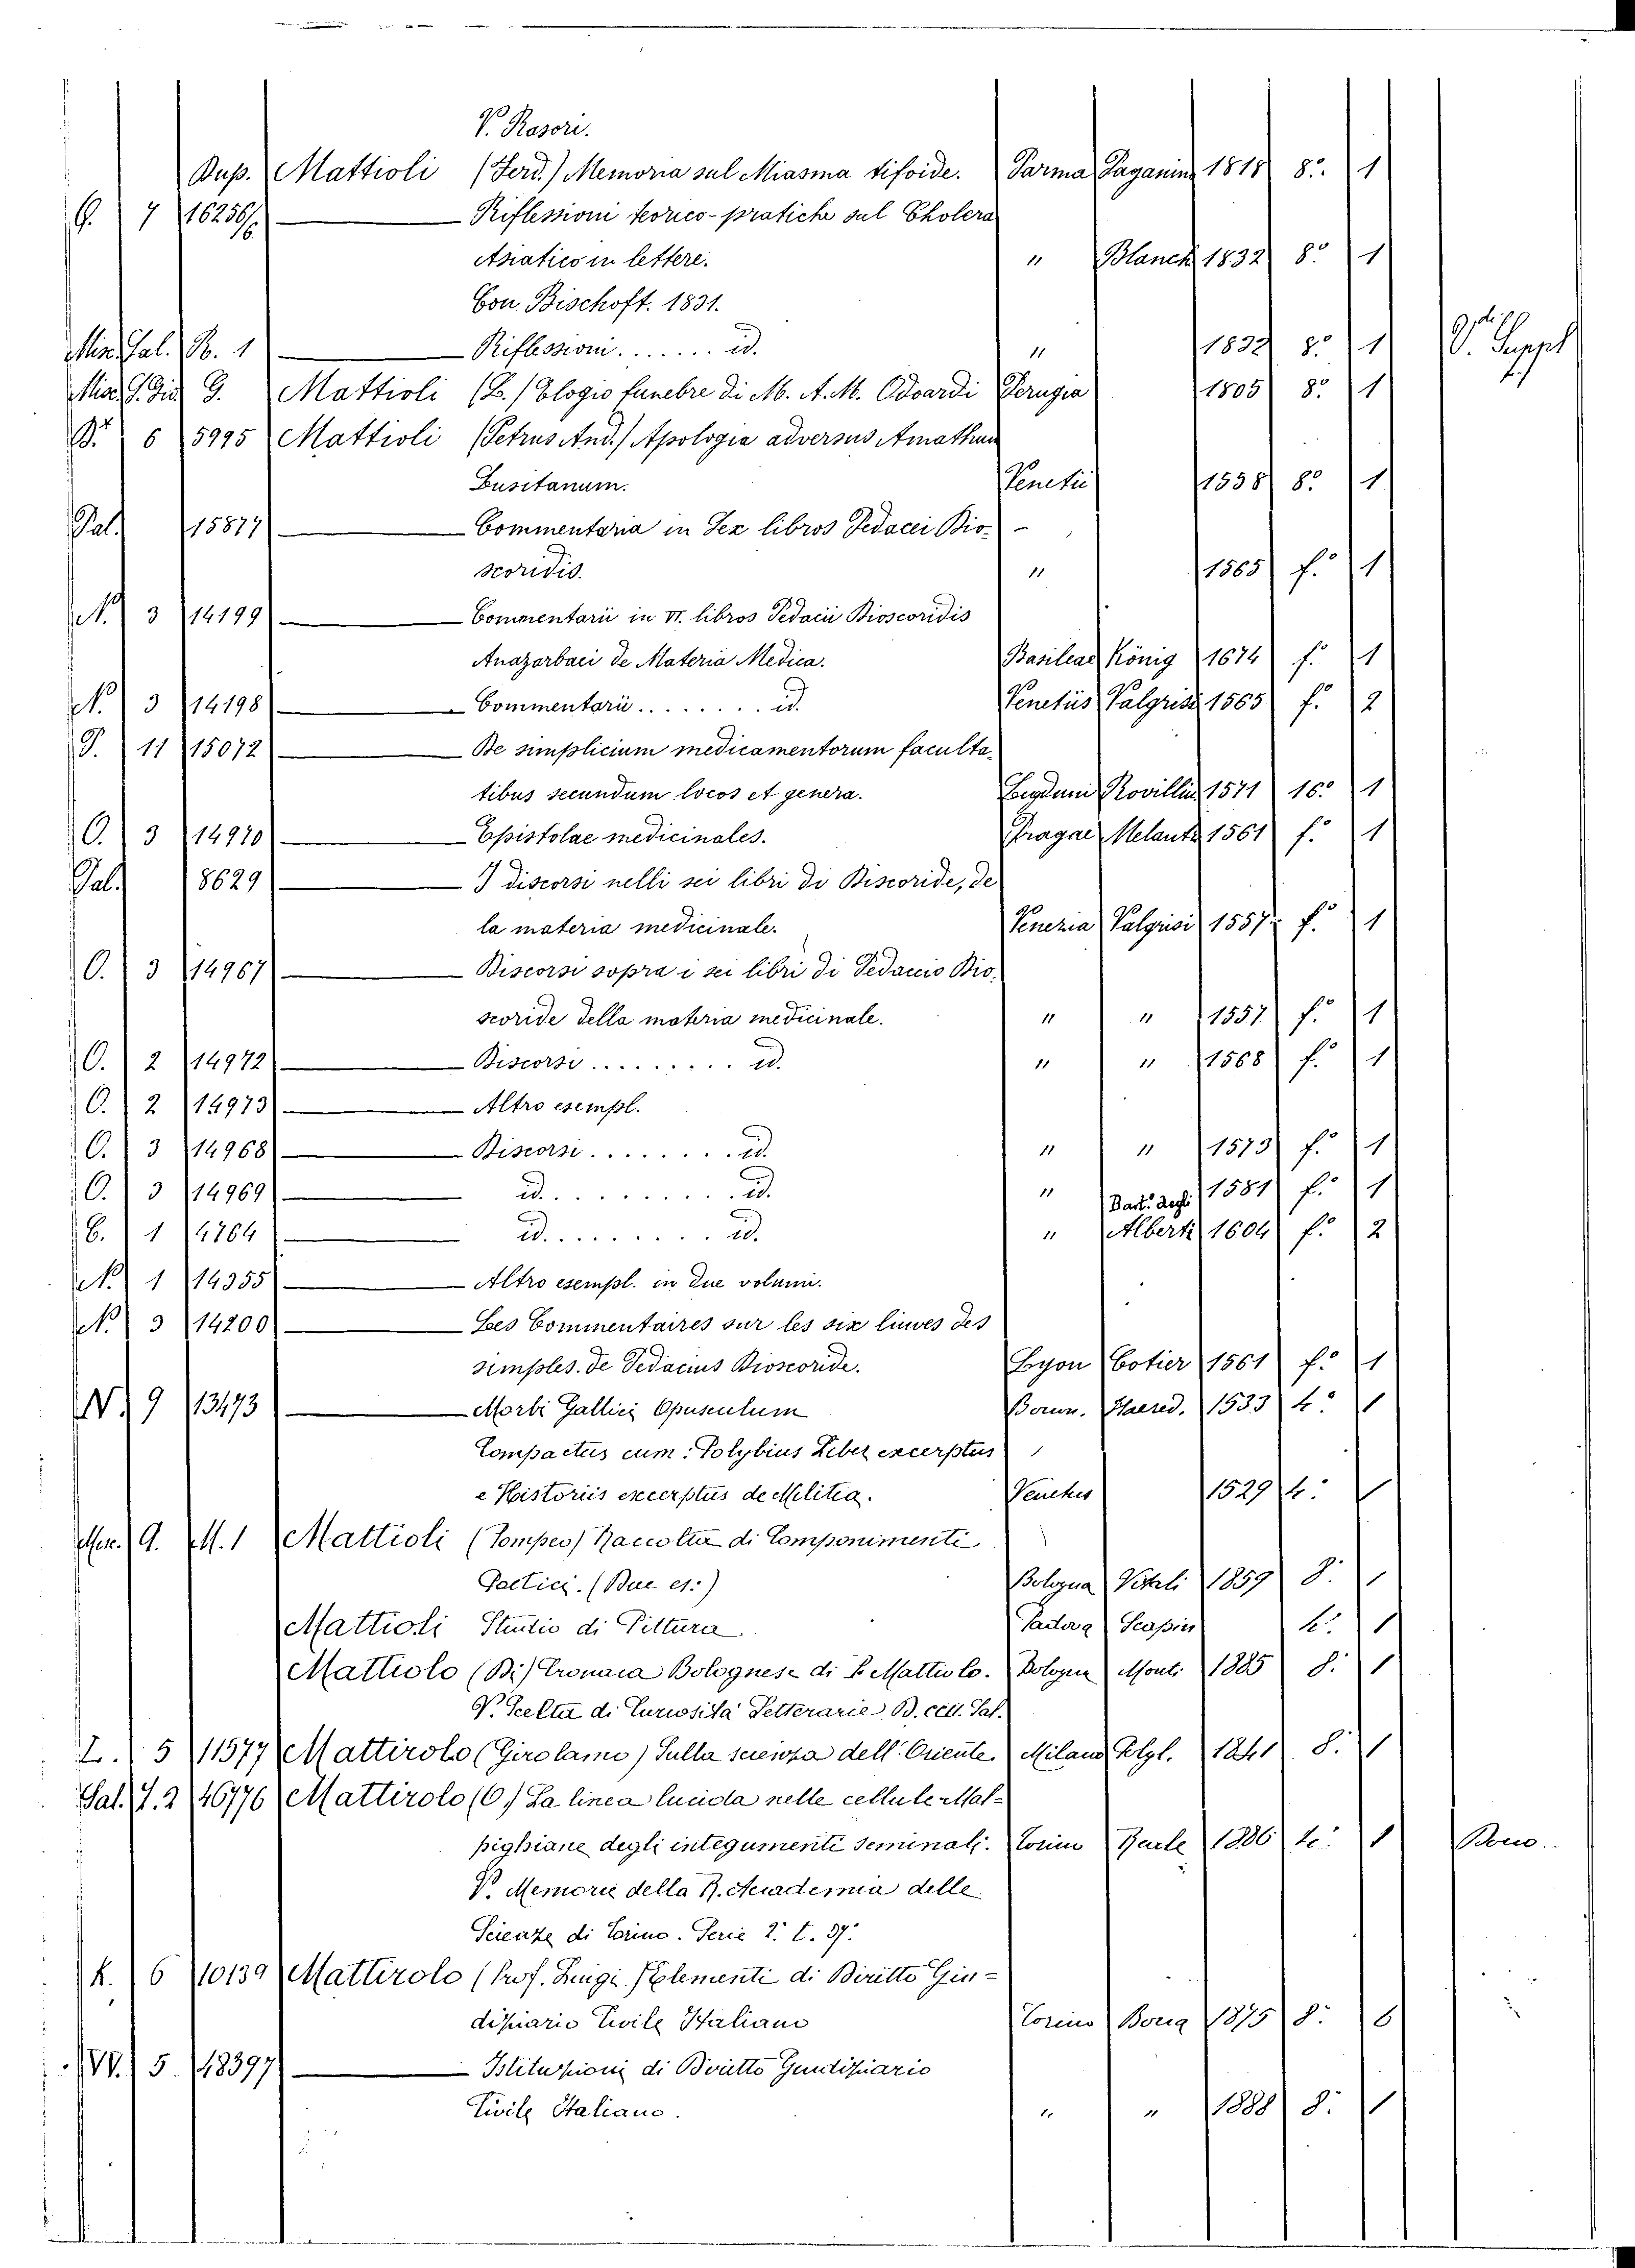 V. Rasori.
Dup. Mattioli (Ferd.) Memoria sul Miasma tifoide. Parma Paganini 1818 8.º 1
G. 7 16256/6. — Riflessioni teorico-pratiche sul Cholera
Asiatico in lettere. " Blanch 1832 8.º 1
Con Bischoft. 1831.
Min. Pal. B. 1 — Riflessioni....... id. " 1832 8.º 1 V. Suppl.
Mis. G. Gia G. Mattioli (L.) Elogio funebre di M. A. M. Odoardi Perugia 1805 8.º 1
6 5995 Mattioli (Petrus And.) Apologia adversus Amathum
Lusitanum. Venetii 1558 8.º 1
Pal. 15877 — Commentaria in Sex libros Pedacei Dio-
scoridis. " 1565 f.º 1
N. 3 14199 — Commentarii in VI. libros Pedacii Dioscoridis
Anazarbaci de Materia Medica. Basileae König 1674 f.º 1
N. 3 14198 — Commentarii........ id. Venetiis Valgrisi 1565 f.º 2
P. 11 15072 — De simplicium medicamentorum faculta-
tibus secundum locos et genera. Lugduni Rovillius 1571 16.º 1
O. 3 14970 — Epistolae medicinales. Pragae Melantr. 1561 f.º 1
Pal. 8629 — I discorsi nelli sei libri di Discoride, de
la materia medicinale. Venezia Valgrisi 1557 f.º 1
O. 3 14967 — Discorsi sopra i sei libri di Pedacio Dio-
scoride della materia medicinale. " " 1557. f.º 1
O. 2 14972 — Discorsi......... id. " " 1568 f.º 1
O. 2 14973 — Altro esempl.
O. 3 14968 — Discorsi........ id. " " 1573 f.º 1
O. 3 14969 — id......... id. " 1581 f.º 1
Bart.º degli
C. 1 4764 — id......... id. " Alberti 1604 f.º 2
N. 1 14355 — Altro esempl. in due volumi.
N. 3 14200 — Les Commentaires sur les six livres des
simples. de Pedacius Dioscoride. Lyon Cotier 1561 f.º 1
N. 9 13473 — Morbi Gallici Opusculum Bonon. Haered. 1533 4.º 1
Compactus cum: Polybius Liber excerptus
e Historiis excerptus de Militia. Venetiis 1529 4.º 1
Misc. G. M. 1 Mattioli (Pompeo) Raccolta di Componimenti
Poetici. (Due es:) Bologna Vitali 1859 8.º 1
Mattioli Studio di Pittura. Padova Scapin 4.º 1
Mattiolo (Di) Cronaca Bolognese di P. Mattiolo. Bologna Monti 1885 8.º 1
V. Scelta di Curiosità Letterarie. B. CCII. Pal.
L. 5 11577 Mattirolo (Girolamo) Sulla scienza dell'Oriente. Milano Polgl. 1841 8.º 1
Sal. I. 2 46776 Mattirolo (O.) La linea lucida nelle cellule Mal-
pighiane degli integumenti seminali. Torino Paule 1886 4.º 1 Dono.
V. Memorie della R. Accademia delle
Scienze di Torino. Serie 2.ª t. 37.º
K. 6 10139 Mattirolo (Prof. Luigi) Elementi di Diritto Giu-
diziario Civile Italiano Torino Bona 1875 8.º 6
W. 5 48397 — Istituzioni di Diritto Giudiziario
Civile Italiano. " " 1888 8.º 1